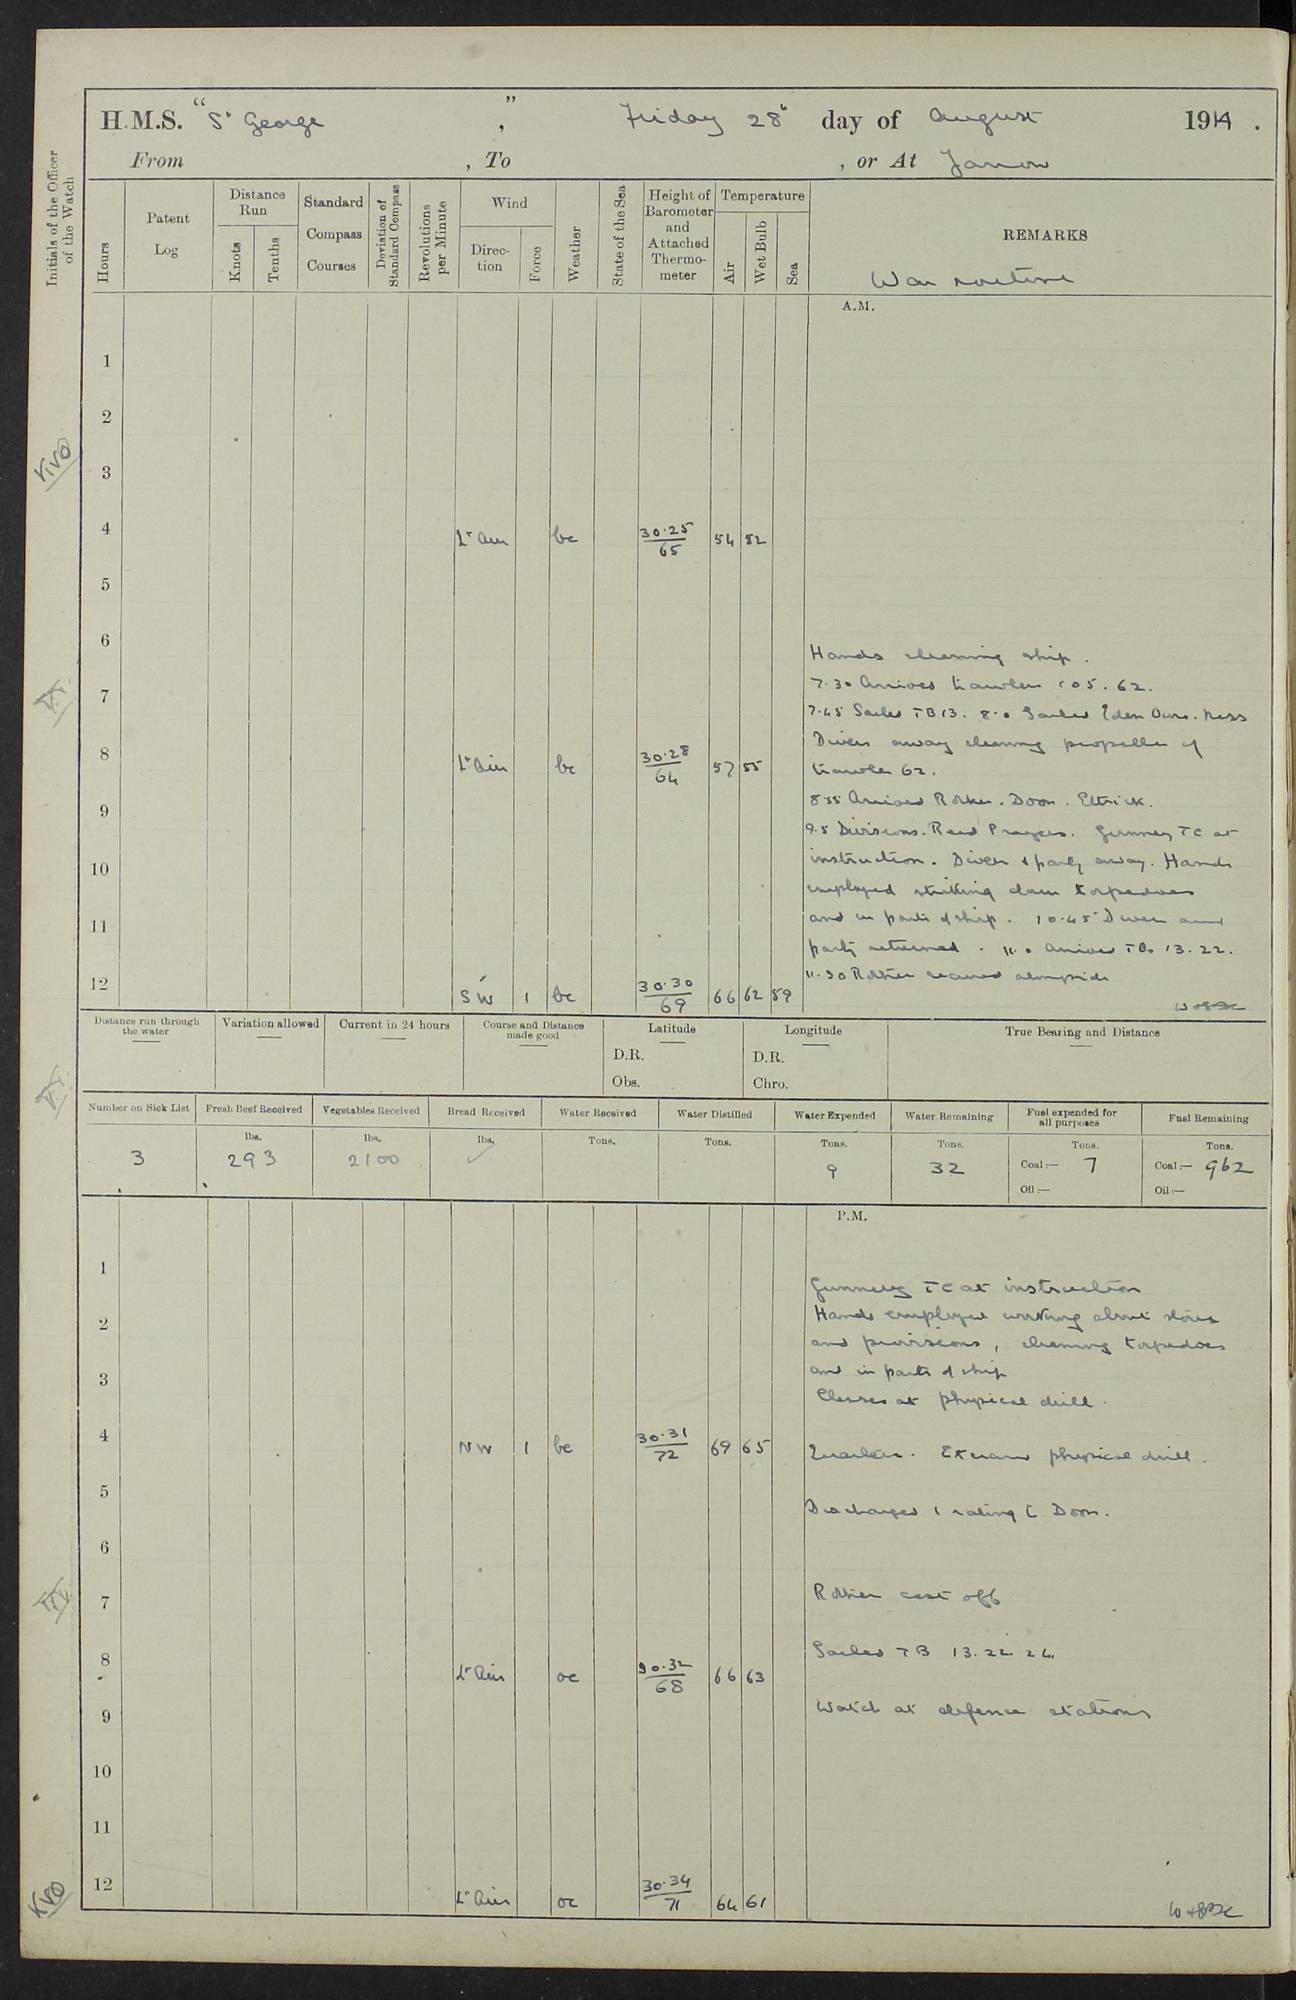 H.M.S. "St George", Friday 28th day of August 1914.
From , To , or At Jarrow
Initials of the Officer of the Watch
Hours
Patent Log
Distance Run
Knots
Tenths
Standard Compass Courses
Deviation of Standard Compass
Revolutions per Minute
Wind
Direction
Force
Weather
State of the Sea
Height of Barometer and Attached Thermometer
Temperature
Air
Wet Bulb
Sea
REMARKS
War routine
A.M.
1
2
3
4 Lt Air bc 30.25 65 54 52
5
6
Hands cleaning ship.
7
7.30 Arrived trawlers 105. 62.
7.45 Sailed TB 13. 8.0 Sailed Eden Ouse. Ness
Divers away clearing propeller of
8 Lt Air bc 30.28 64 57 55
trawler 62.
8.35 Arrived Rother. Doon. Ettrick.
9
9.5 Divisions. Read Prayers. Gunnery TC at
instruction. Diver & party away. Hands
10
employed striking down torpedoes
and in parts of ship. 10.45 Diver and
11
party returned. 11.0 Arrived TBs 13. 22.
11.30 Rother secured alongside
12 SW 1 bc 30.30 69 66 62 59
Distance run through the water
Variation allowed
Current in 24 hours
Course and Distance made good
Latitude
D.R.
Obs.
Longitude
D.R.
Chro.
True Bearing and Distance
Number on Sick List
Fresh Beef Received
Vegetables Received
Bread Received
Water Received
Water Distilled
Water Expended
Water Remaining
Fuel expended for all purposes
Fuel Remaining
3
lbs. 293
lbs. 2100
lbs. ✓
Tons.
Tons.
Tons. 9
Tons. 32
Tons. Coal:— 7
Oil:—
Tons. Coal:— 962
Oil:—
P.M.
1
Gunnery TC at instruction
2
Hands employed working about stores
and provisions, cleaning torpedoes
3
and in parts of ship
Classes at physical drill.
4 NW 1 bc 30.31 72 69 65
Quarters. physical drill.
5
Discharged 1 rating to Doon.
6
7
Rother cast off
8 Lt Air oc 30.32 68 66 63
Sailed TB 13. 22 24
9
Watch at defence stations
10
11
12 Lt Air oc 30.34 71 64 61